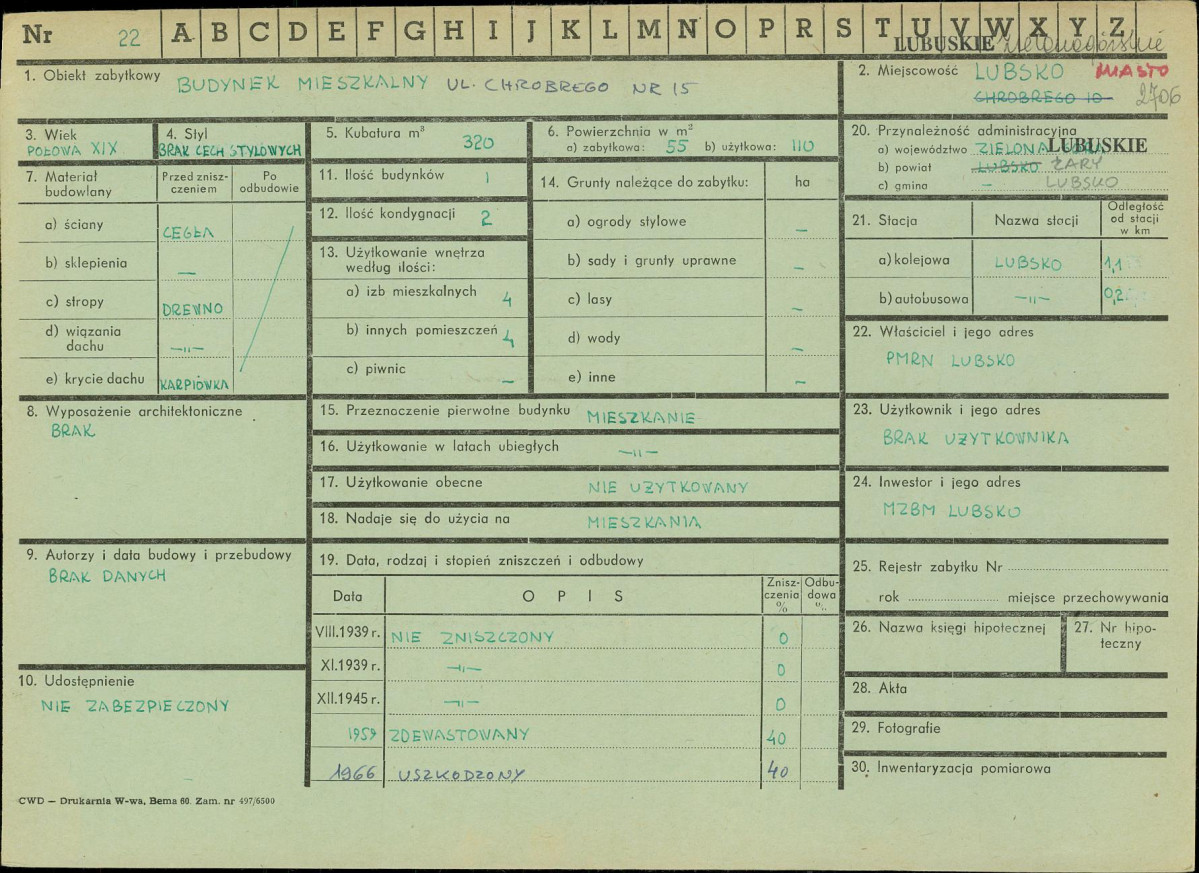 Nr 22 A B C D E F G H I J K L M N O P R S T U V W X Y Z
LUBUSKIE zielonogórskie
1. Obiekt zabytkowy BUDYNEK MIESZKALNY UL. CHROBREGO NR 15
2. Miejscowość LUBSKO MIASTO
CHROBREGO 10 2706
3. Wiek
POŁOWA XIX
4. Styl
BRAK CECH STYLOWYCH
5. Kubatura m³ 320
6. Powierzchnia w m²
a) zabytkowa: 55 b) użytkowa: 110
7. Materiał budowlany
Przed zniszczeniem
Po odbudowie
a) ściany CEGŁA
b) sklepienia —
c) stropy DREWNO
d) wiązania dachu —„—
e) krycie dachu KARPIÓWKA
8. Wyposażenie architektoniczne
BRAK
9. Autorzy i data budowy i przebudowy
BRAK DANYCH
10. Udostępnienie
NIE ZABEZPIECZONY
11. Ilość budynków 1
12. Ilość kondygnacji 2
13. Użytkowanie wnętrza
według ilości:
a) izb mieszkalnych 4
b) innych pomieszczeń 4
c) piwnic —
14. Grunty należące do zabytku: ha
a) ogrody stylowe —
b) sady i grunty uprawne —
c) lasy —
d) wody —
e) inne —
15. Przeznaczenie pierwotne budynku MIESZKANIE
16. Użytkowanie w latach ubiegłych —„—
17. Użytkowanie obecne NIE UŻYTKOWANY
18. Nadaje się do użycia na MIESZKANIA
19. Data, rodzaj i stopień zniszczeń i odbudowy
Data OPIS Zniszczenia % Odbudowa %
VIII.1939 r. NIE ZNISZCZONY 0
XI.1939 r. —„— 0
XII.1945 r. —„— 0
1959 ZDEWASTOWANY 40
1966 USZKODZONY 40
20. Przynależność administracyjna
a) województwo ZIELONA GÓRA LUBUSKIE
b) powiat LUBSKO ŻARY
c) gmina — LUBSKO
21. Stacja Nazwa stacji Odległość od stacji w km
a) kolejowa LUBSKO 1,1
b) autobusowa —„— 0,2
22. Właściciel i jego adres
PMRN LUBSKO
23. Użytkownik i jego adres
BRAK UŻYTKOWNIKA
24. Inwestor i jego adres
MZBM LUBSKO
25. Rejestr zabytku Nr
rok miejsce przechowywania
26. Nazwa księgi hipotecznej
27. Nr hipoteczny
28. Akta
29. Fotografie
30. Inwentaryzacja pomiarowa
CWD — Drukarnia W-wa, Bema 60. Zam. nr 497/6500